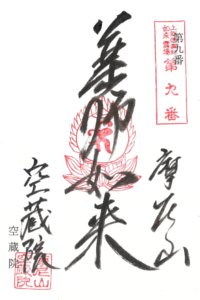 第九番
第九番
摩尼山
薬師如来
空蔵院
空蔵院